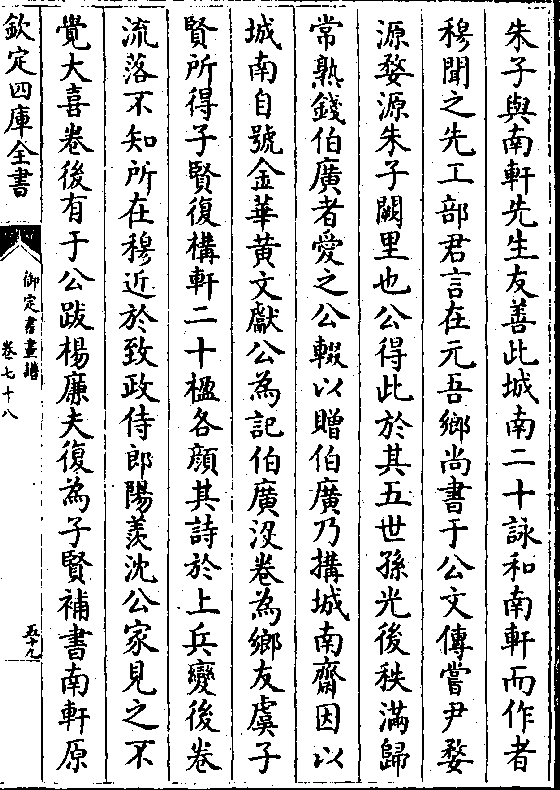 朱子與南軒先生友善此城南二十詠和南軒而作者
穆聞之先工部君言在元吾鄉尚書于公文傳嘗尹婺
源婺源朱子闕里也公得此於其五世孫光後秩滿歸
常熟錢伯廣者愛之公輟以贈伯廣乃搆城南齋因以
城南自號金華黄文獻公為記伯廣沒卷為鄉友虞子
賢所得子賢復構軒二十楹各顔其詩於上兵變後卷
流落不知所在穆近於致政侍郎陽羨沈公家見之不
覺大喜卷後有于公跋楊廉夫復為子賢補書南軒原
欽定四庫全書
御定書畫譜
卷七十八
五十九